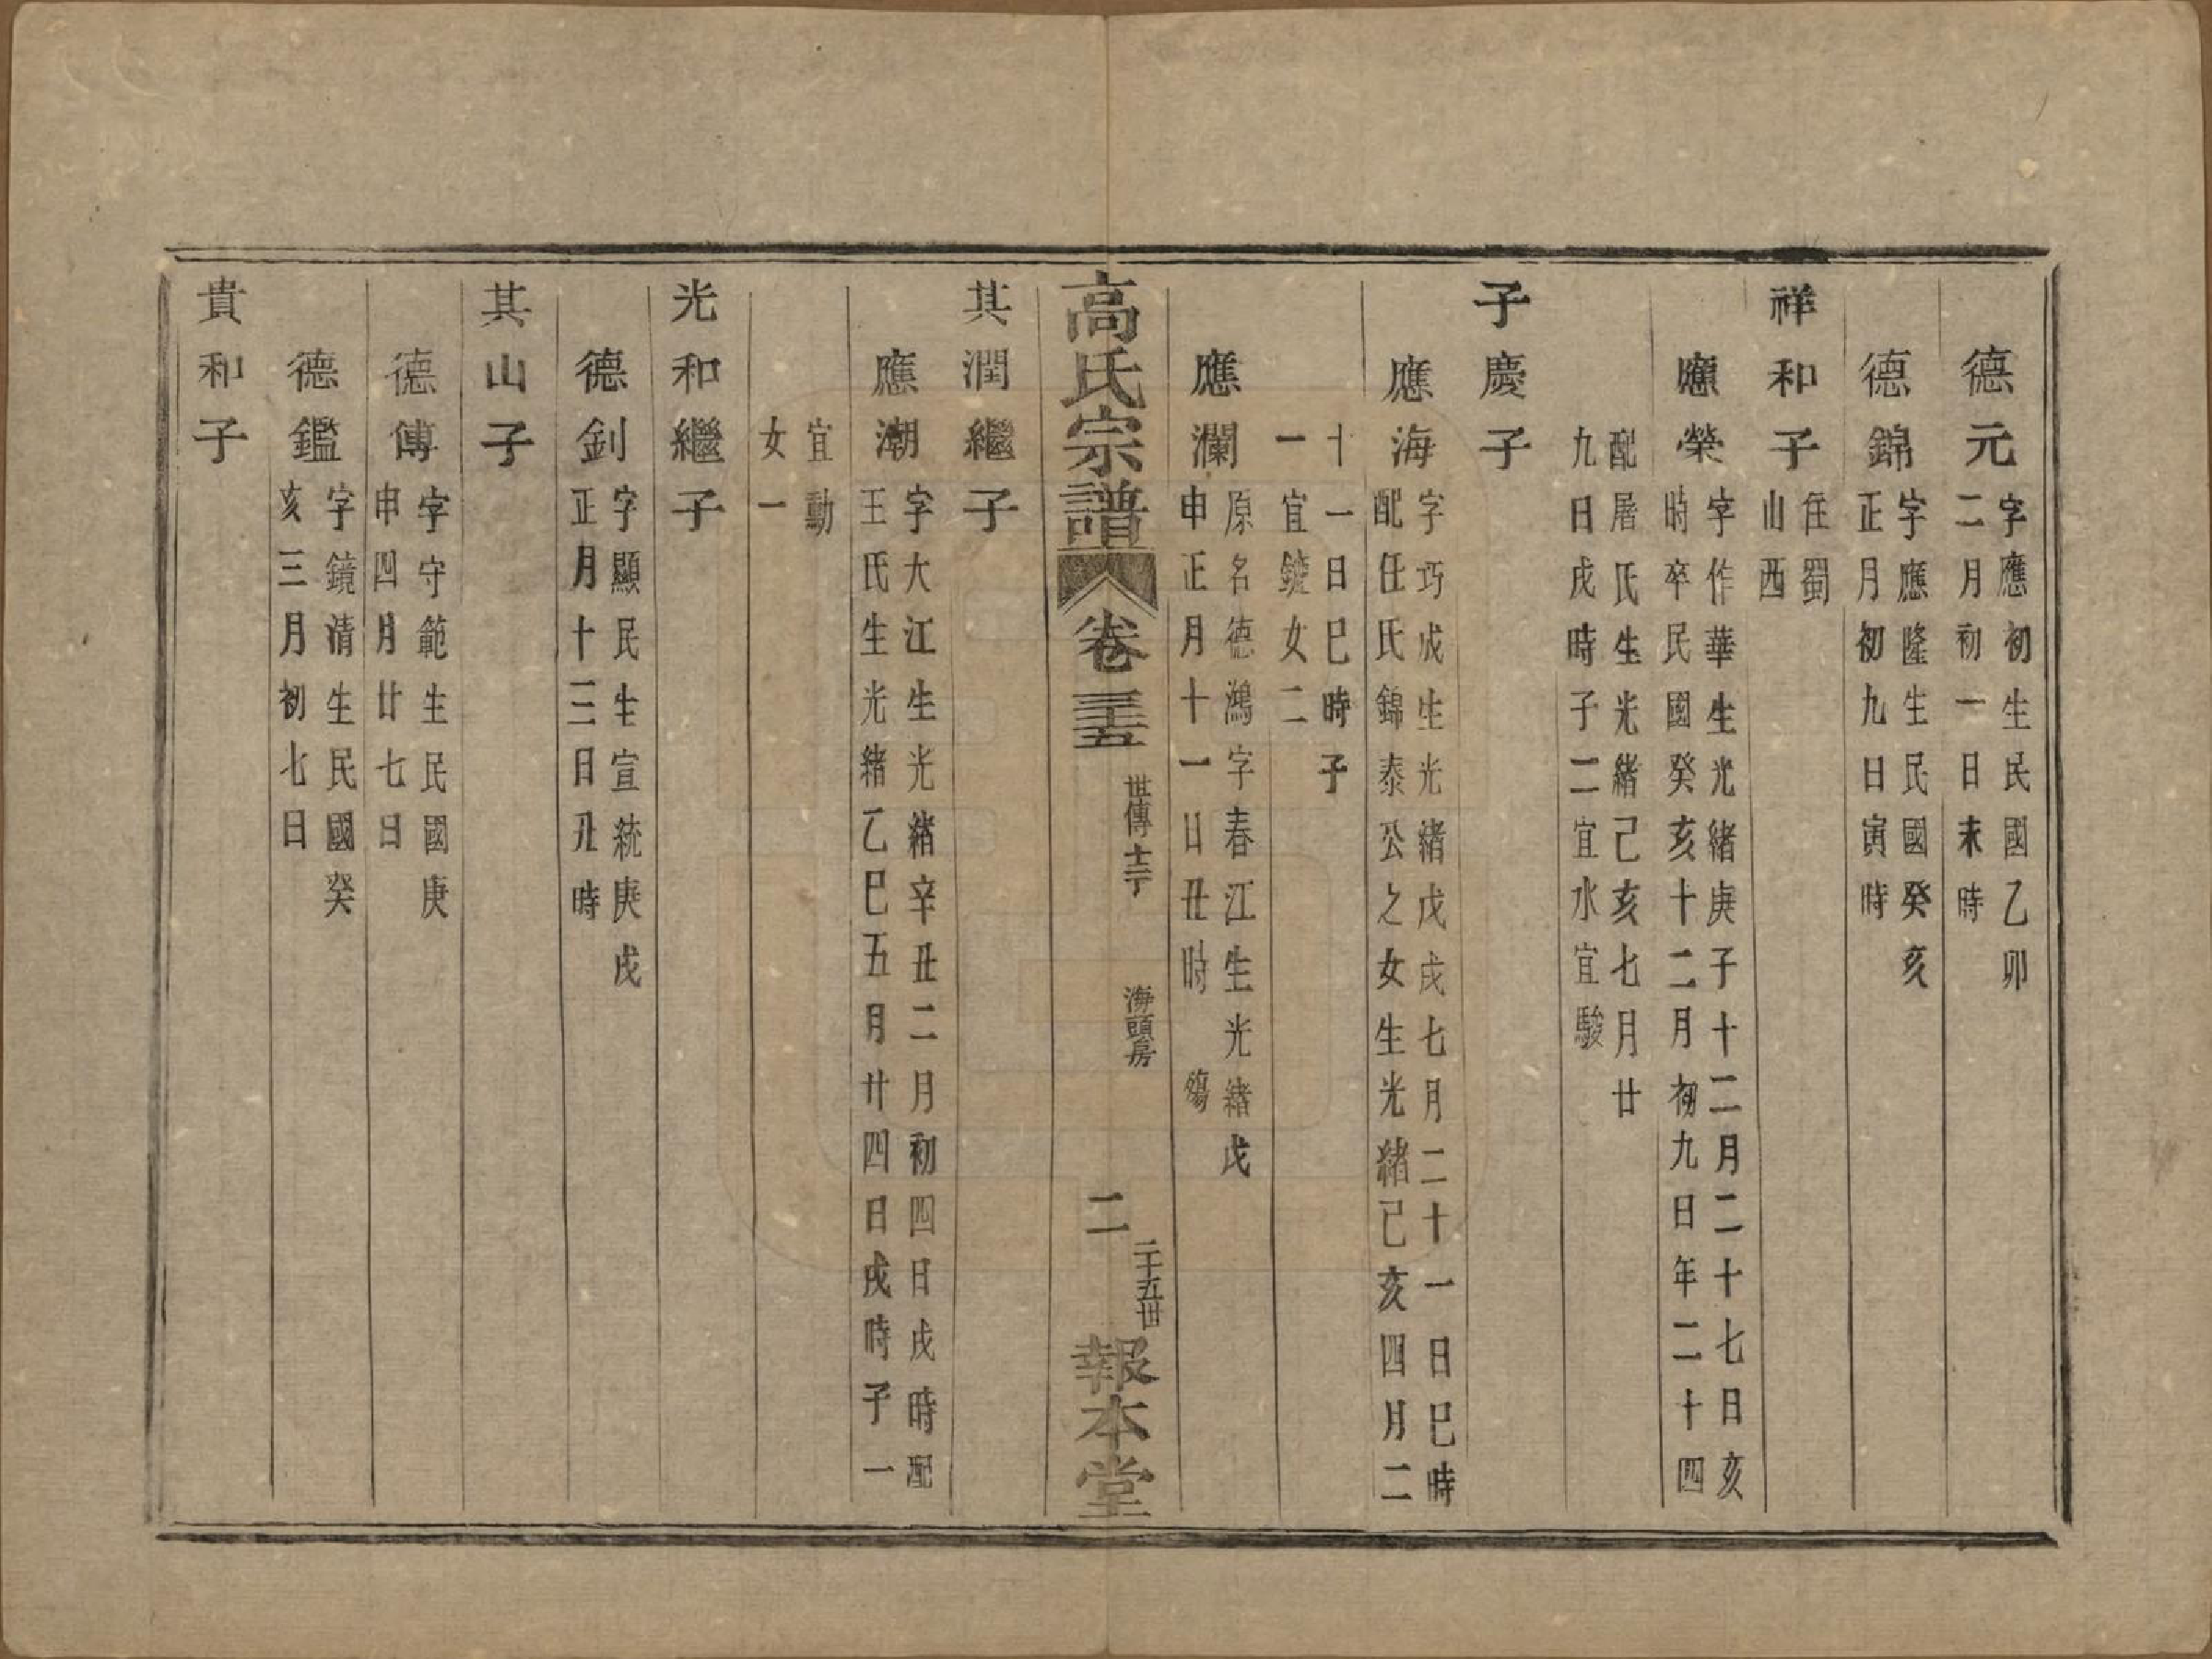 德元字應初生民國乙卯
二月初一日未時
德錦字應隆生民國癸亥
正月初九日寅時
祥和子住蜀
山西
應榮字作華生光緒庚子十二月二十七日亥
時卒民國癸亥十二月初九日年二十四
配屠氏生光緒己亥七月廿
九日戌時子二宜水宜駿
子慶子
應海字巧成生光緒戊戌七月二十一日巳時
配任氏錦泰公之女生光緒己亥四月二
十一日巳時子
一宜鏇女二
應瀾原名德鴻字春江生光緒戊
申正月十一日丑時 殤
高氏宗譜 卷三十五 世傳十二 海頭房 二 二十五世 報本堂
其潤繼子
應潮字大江生光緒辛丑二月初四日戌時配
王氏生光緒乙巳五月廿四日戌時子一
宜勳
女一
光和繼子
德釗字顯民生宣統庚戌
正月十三日丑時
其山子
德傅字守範生民國庚
申四月廿七日
德鑑字鏡清生民國癸
亥三月初七日
貴和子